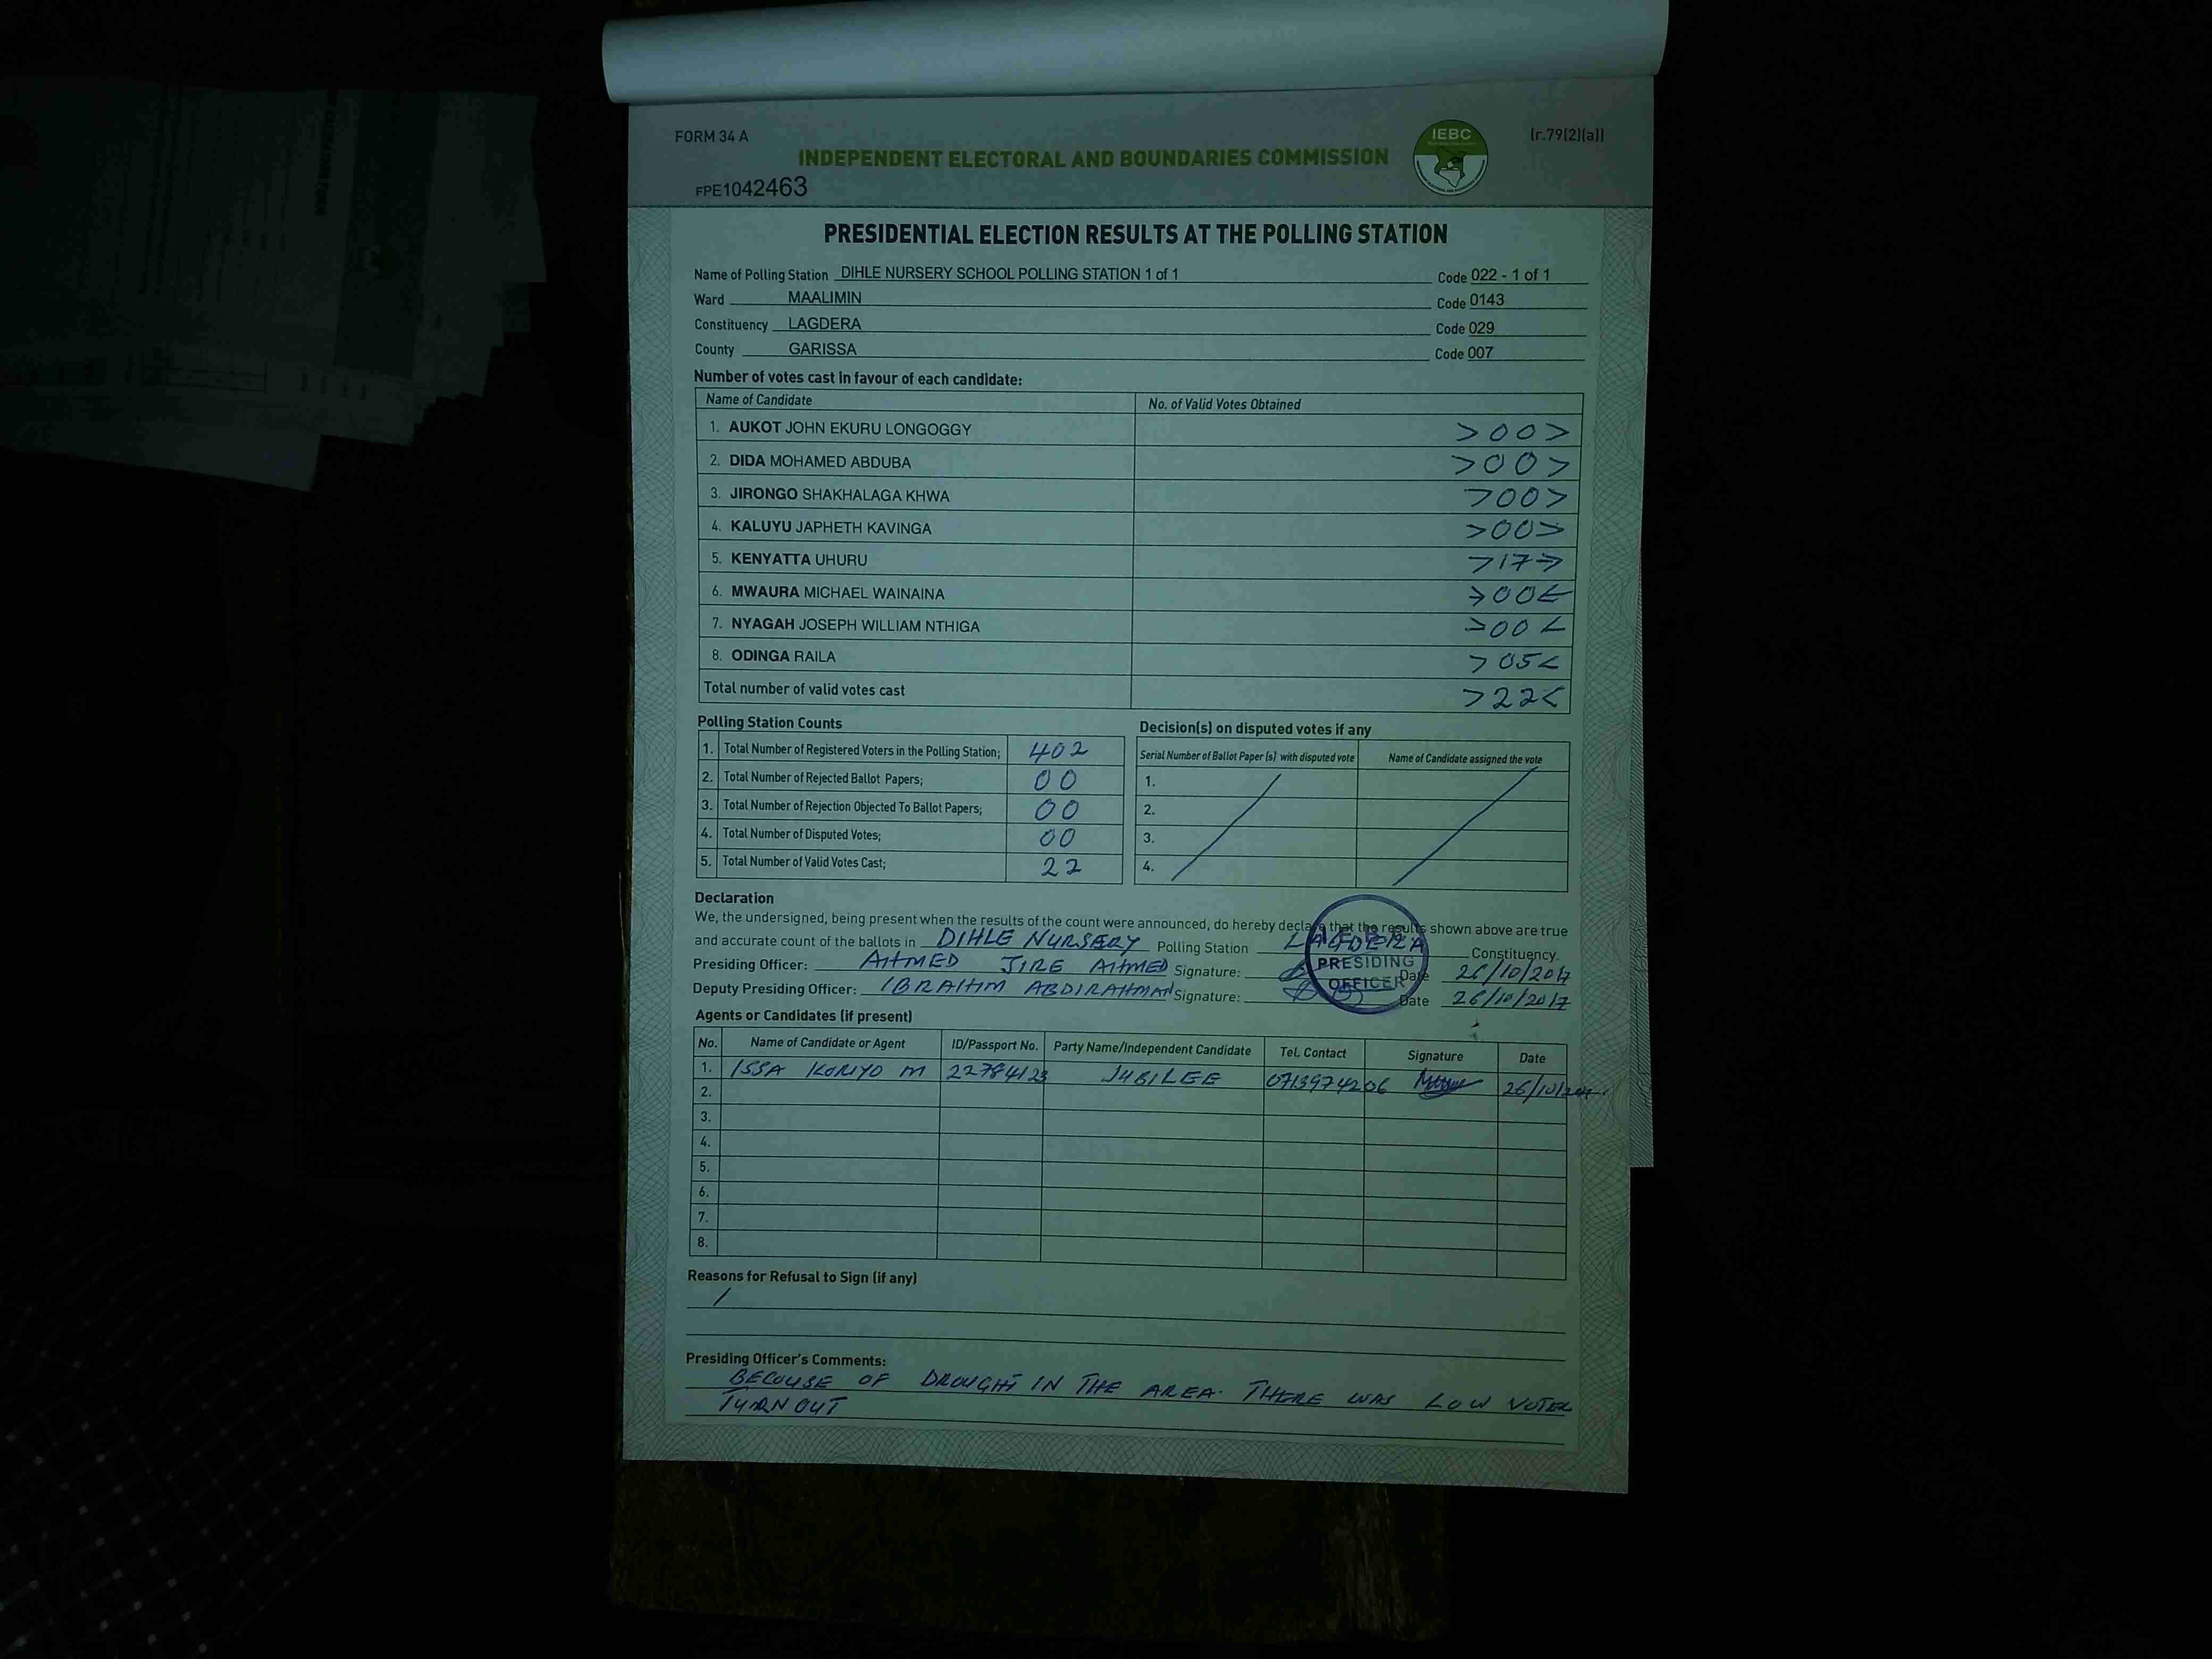 FORM 34 A
IEBC
(r.79(2)(a))
INDEPENDENT ELECTORAL AND BOUNDARIES COMMISSION
FPE1042463
PRESIDENTIAL ELECTION RESULTS AT THE POLLING STATION
Name of Polling Station DIHLE NURSERY SCHOOL POLLING STATION 1 of 1 Code 022 - 1 of 1
Ward MAALIMIN Code 0143
Constituency LAGDERA Code 029
County GARISSA Code 007
Number of votes cast in favour of each candidate:
Name of Candidate No. of Valid Votes Obtained
1. AUKOT JOHN EKURU LONGOGGY >00>
2. DIDA MOHAMED ABDUBA >00>
3. JIRONGO SHAKHALAGA KHWA >00>
4. KALUYU JAPHETH KAVINGA >00>
5. KENYATTA UHURU >17>
6. MWAURA MICHAEL WAINAINA >00<
7. NYAGAH JOSEPH WILLIAM NTHIGA >00<
8. ODINGA RAILA >05<
Total number of valid votes cast >22<
Polling Station Counts
1. Total Number of Registered Voters in the Polling Station; 402
2. Total Number of Rejected Ballot Papers; 00
3. Total Number of Rejection Objected To Ballot Papers; 00
4. Total Number of Disputed Votes; 00
5. Total Number of Valid Votes Cast; 22
Decision(s) on disputed votes if any
Serial Number of Ballot Paper (s) with disputed vote Name of Candidate assigned the vote
1.
2.
3.
4.
Declaration
We, the undersigned, being present when the results of the count were announced, do hereby declare that the results shown above are true
and accurate count of the ballots in DIHLE NURSERY Polling Station LAGDERA Constituency.
Presiding Officer: AHMED JIRE AHMED Signature: Date 26/10/2017
Deputy Presiding Officer: IBRAHIM ABDIRAHMAN Signature: Date 26/10/2017
IEBC
PRESIDING
OFFICER
Agents or Candidates (if present)
No. Name of Candidate or Agent ID/Passport No. Party Name/Independent Candidate Tel. Contact Signature Date
1. ISSA KORIYO M 22784123 JUBILEE 0713974206 26/10/
2.
3.
4.
5.
6.
7.
8.
Reasons for Refusal to Sign (if any)
/
Presiding Officer's Comments:
BECOUSE OF DROUGHT IN THE AREA. THERE WAS LOW VOTER
TURN OUT